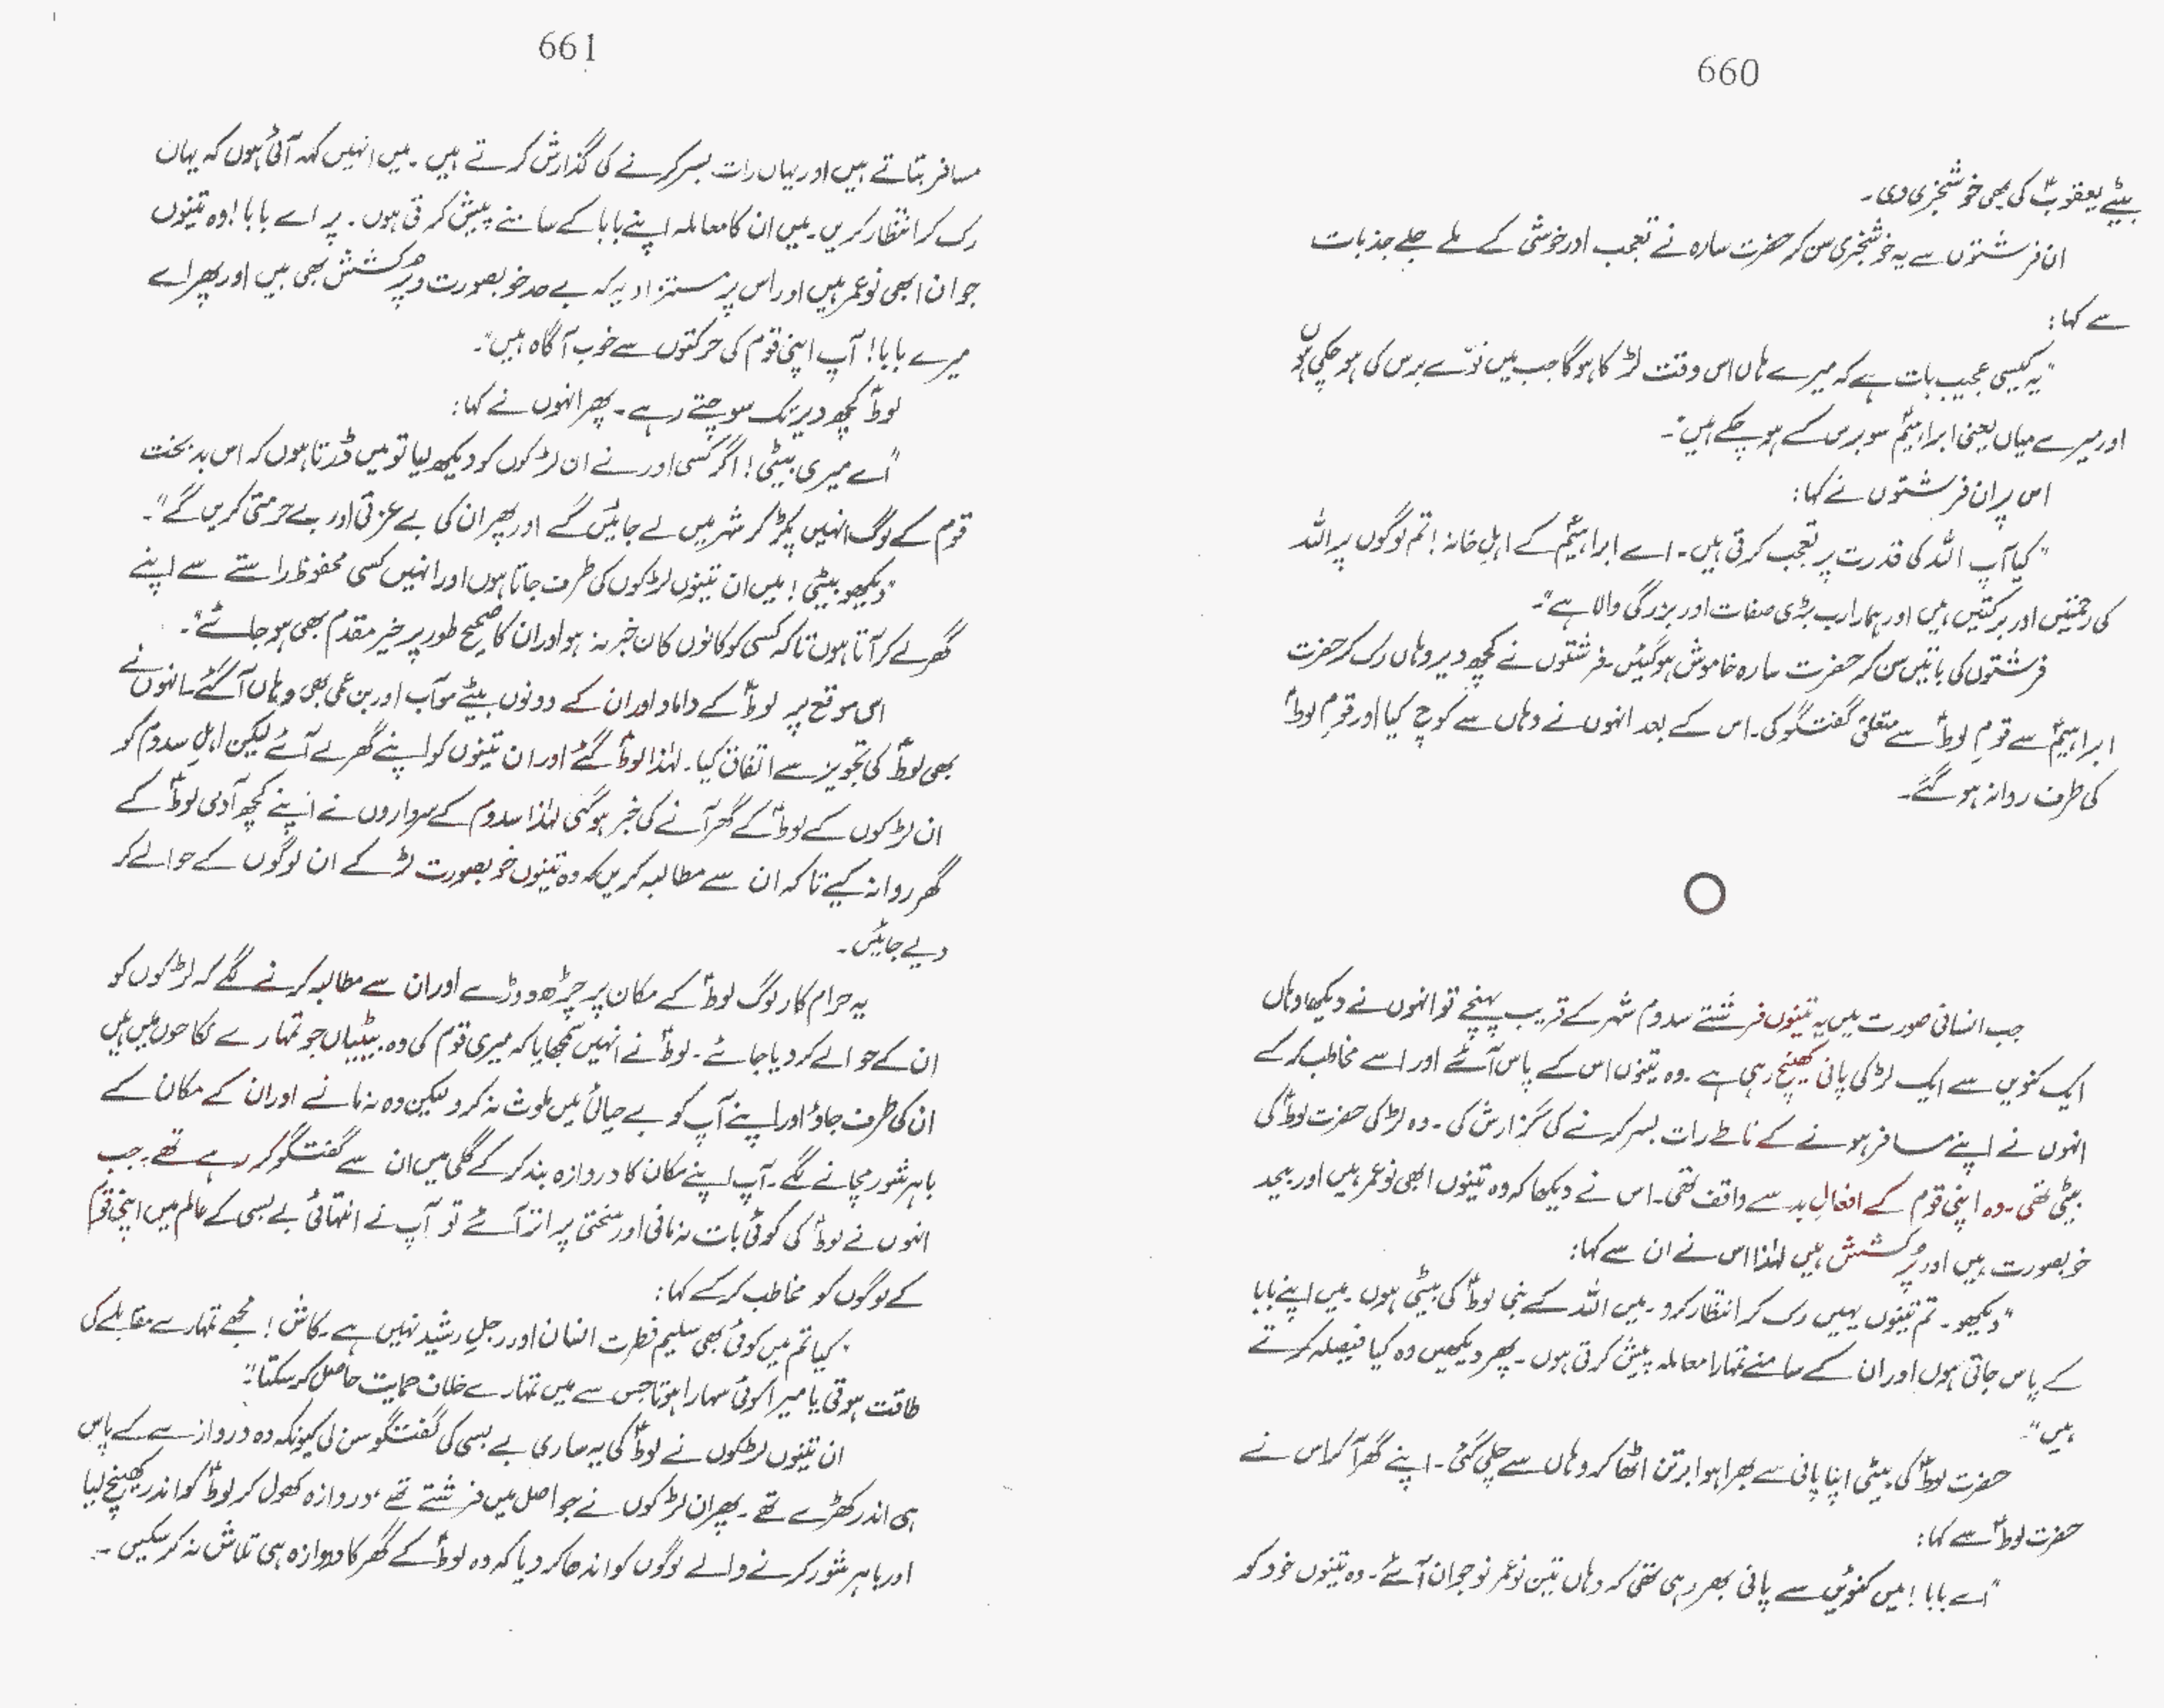 660
بیٹے یعقوبؑ کی بھی خوشخبری دی۔
ان فرشتوں سے یہ خوشخبری سن کر حضرت سارہ نے تعجب اور خوشی کے ملے جلے جذبات
سے کہا:
"یہ کیسی عجیب بات ہے کہ میرے ہاں اس وقت لڑکا ہوگا جب میں نوّے برس کی ہو چکی ہوں
اور میرے میاں یعنی ابراہیمؑ سو برس کے ہو چکے ہیں"۔
اس پر ان فرشتوں نے کہا:
"کیا آپ اللہ کی قدرت پر تعجب کرتی ہیں۔ اے ابراہیمؑ کے اہلِ خانہ! تم لوگوں پر اللہ
کی رحمتیں اور برکتیں ہیں اور ہمارا رب بڑی صفات اور بزرگی والا ہے"۔
فرشتوں کی باتیں سن کر حضرت سارہ خاموش ہو گئیں۔ فرشتوں نے کچھ دیر وہاں رک کر حضرت
ابراہیمؑ سے قومِ لوطؑ سے متعلق گفتگو کی۔ اس کے بعد انہوں نے وہاں سے کوچ کیا اور قومِ لوطؑ
کی طرف روانہ ہو گئے۔
جب انسانی صورت میں یہ تینوں فرشتے سدوم شہر کے قریب پہنچے تو انہوں نے دیکھا وہاں
ایک کنویں سے ایک لڑکی پانی کھینچ رہی ہے۔ وہ تینوں اس کے پاس آئے اور اسے مخاطب کر کے
انہوں نے اپنے مسافر ہونے کے ناطے رات بسر کرنے کی گزارش کی۔ وہ لڑکی حضرت لوطؑ کی
بیٹی تھی۔ وہ اپنی قوم کے افعالِ بد سے واقف تھی۔ اس نے دیکھا کہ وہ تینوں ابھی نوعمر ہیں اور بیحد
خوبصورت ہیں اور پُرکشش ہیں لہٰذا اس نے ان سے کہا:
"دیکھو۔ تم تینوں یہیں رک کر انتظار کرو۔ میں اللہ کے نبی لوطؑ کی بیٹی ہوں۔ میں اپنے بابا
کے پاس جاتی ہوں اور ان کے سامنے تمہارا معاملہ پیش کرتی ہوں۔ پھر دیکھیں وہ کیا فیصلہ کرتے
ہیں"۔
حضرت لوطؑ کی بیٹی اپنا پانی سے بھرا ہوا برتن اٹھا کر وہاں سے چلی گئی۔ اپنے گھر آ کر اس نے
حضرت لوطؑ سے کہا:
"اے بابا! میں کنوئیں سے پانی بھر رہی تھی کہ وہاں تین نوعمر نوجوان آئے۔ وہ تینوں خود کو
661
مسافر بتاتے ہیں اور یہاں رات بسر کرنے کی گذارش کرتے ہیں۔ میں انہیں کہہ آئی ہوں کہ یہاں
رک کر انتظار کریں۔ میں ان کا معاملہ اپنے بابا کے سامنے پیش کرتی ہوں۔ پر اے بابا! وہ تینوں
جوان ابھی نوعمر ہیں اور اس پر مستزاد یہ کہ بے حد خوبصورت و پرکشش بھی ہیں اور پھر اے
میرے بابا! آپ اپنی قوم کی حرکتوں سے خوب آگاہ ہیں"۔
لوطؑ کچھ دیر تک سوچتے رہے۔ پھر انہوں نے کہا:
"اے میری بیٹی! اگر کسی اور نے ان لڑکوں کو دیکھ لیا تو میں ڈرتا ہوں کہ اس بدبخت
قوم کے لوگ انہیں پکڑ کر شہر میں لے جائیں گے اور پھر ان کی بے عزتی اور بے حرمتی کریں گے"۔
"دیکھو بیٹی! میں ان تینوں لڑکوں کی طرف جاتا ہوں اور انہیں کسی محفوظ راستے سے اپنے
گھر لے کر آتا ہوں تاکہ کسی کو کانوں کان خبر نہ ہو اور ان کا صحیح طور پر خیر مقدم بھی ہو جائے"۔
اسی موقع پر لوطؑ کے داماد اور ان کے دونوں بیٹے موآب اور بن عمی بھی وہاں آ گئے۔ انہوں نے
بھی لوطؑ کی تجویز سے اتفاق کیا۔ لہٰذا لوطؑ گئے اور ان تینوں کو اپنے گھر لے آئے لیکن اہلِ سدوم کو
ان لڑکوں کے لوطؑ کے گھر آنے کی خبر ہو گئی لہٰذا سدوم کے سرداروں نے اپنے کچھ آدمی لوطؑ کے
گھر روانہ کیے تاکہ ان سے مطالبہ کریں کہ وہ تینوں خوبصورت لڑکے ان لوگوں کے حوالے کر
دیے جائیں۔
یہ حرام کار لوگ لوطؑ کے مکان پر چڑھ دوڑے اور ان سے مطالبہ کرنے لگے کہ لڑکوں کو
ان کے حوالے کر دیا جائے۔ لوطؑ نے انہیں سمجھایا کہ میری قوم کی وہ بیٹیاں جو تمہارے نکاحوں میں ہیں
ان کی طرف جاؤ اور اپنے آپ کو بے حیائی میں ملوث نہ کرو لیکن وہ نہ مانے اور ان کے مکان کے
باہر شور مچانے لگے۔ آپ اپنے مکان کا دروازہ بند کر کے گلی میں ان سے گفتگو کر رہے تھے۔ جب
انہوں نے لوطؑ کی کوئی بات نہ مانی اور سختی پر اتر آئے تو آپ نے انتہائی بے بسی کے عالم میں اپنی قوم
کے لوگوں کو مخاطب کر کے کہا:
"کیا تم میں کوئی بھی سلیم فطرت انسان اور رجلِ رشید نہیں ہے۔ کاش! مجھے تمہارے مقابلے کی
طاقت ہوتی یا میرا کوئی سہارا ہوتا جس سے میں تمہارے خلاف حمایت حاصل کر سکتا"۔
ان تینوں لڑکوں نے لوطؑ کی یہ ساری بے بسی کی گفتگو سن لی کیونکہ وہ دروازے کے پاس
ہی اندر کھڑے تھے۔ پھر ان لڑکوں نے جو اصل میں فرشتے تھے، دروازہ کھول کر لوطؑ کو اندر کھینچ لیا
اور باہر شور کرنے والے لوگوں کو اندھا کر دیا کہ وہ لوطؑ کے گھر کا دروازہ ہی تلاش نہ کر سکیں۔